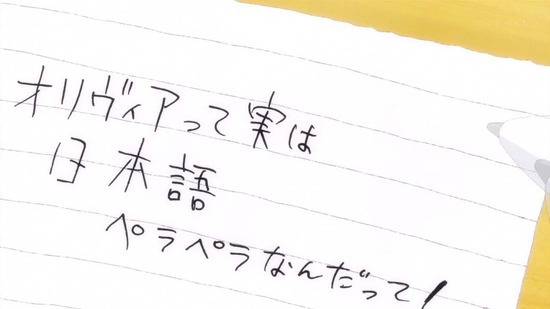 オリヴィアって実は
日本語
ペラペラなんだって!